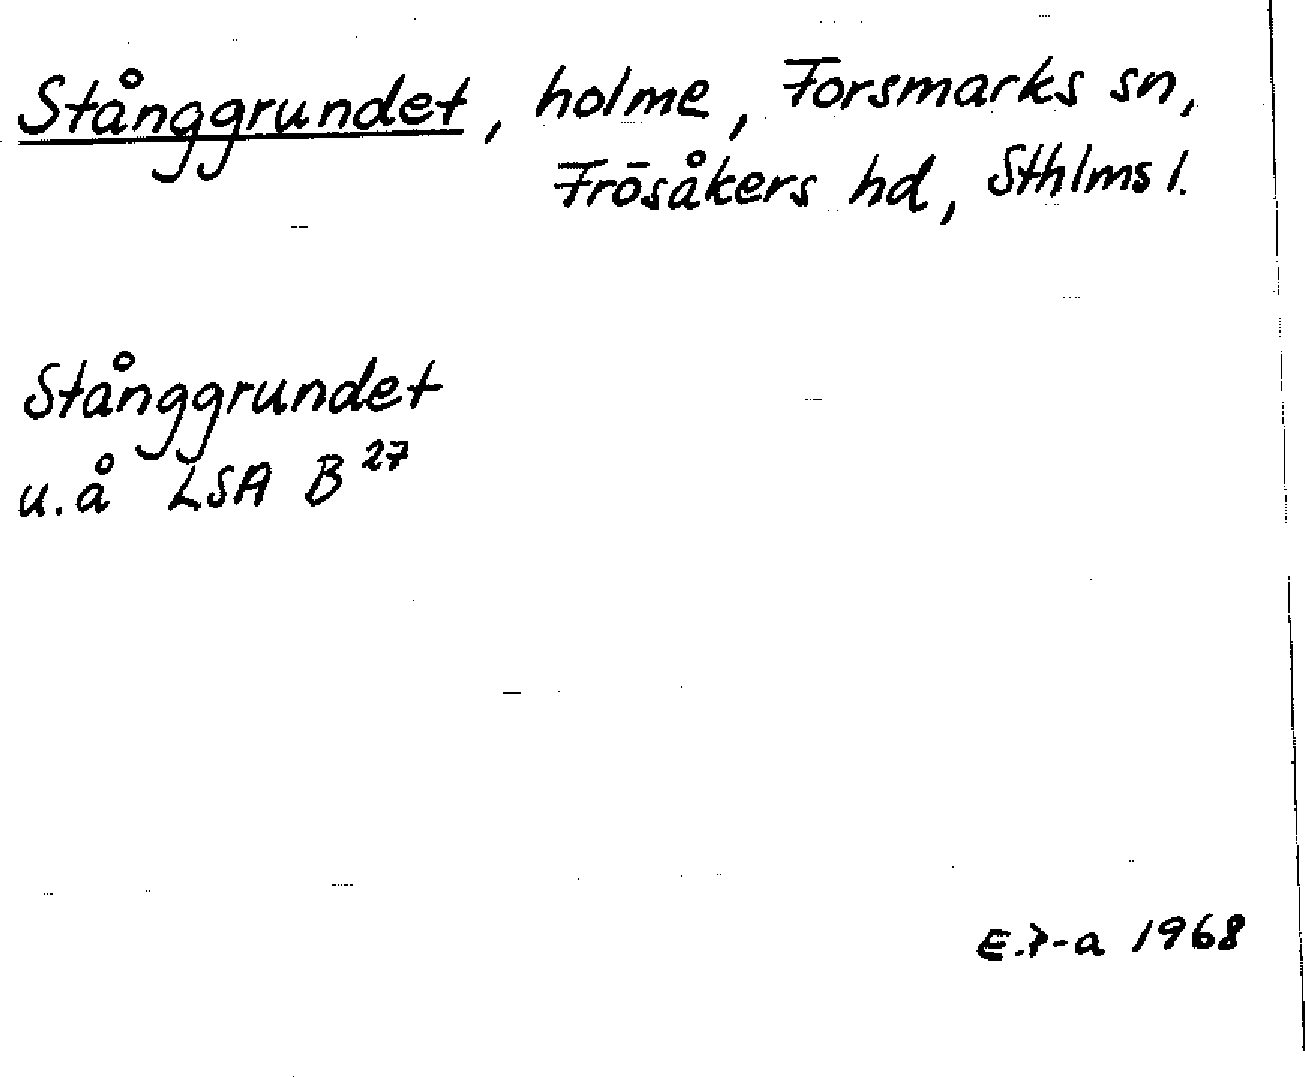 Stånggrundet, holme, Forsmarks sn,
Frösåkers hd, Sthlms l.
Stånggrundet
u.å LSA B 27
E.P-a 1968